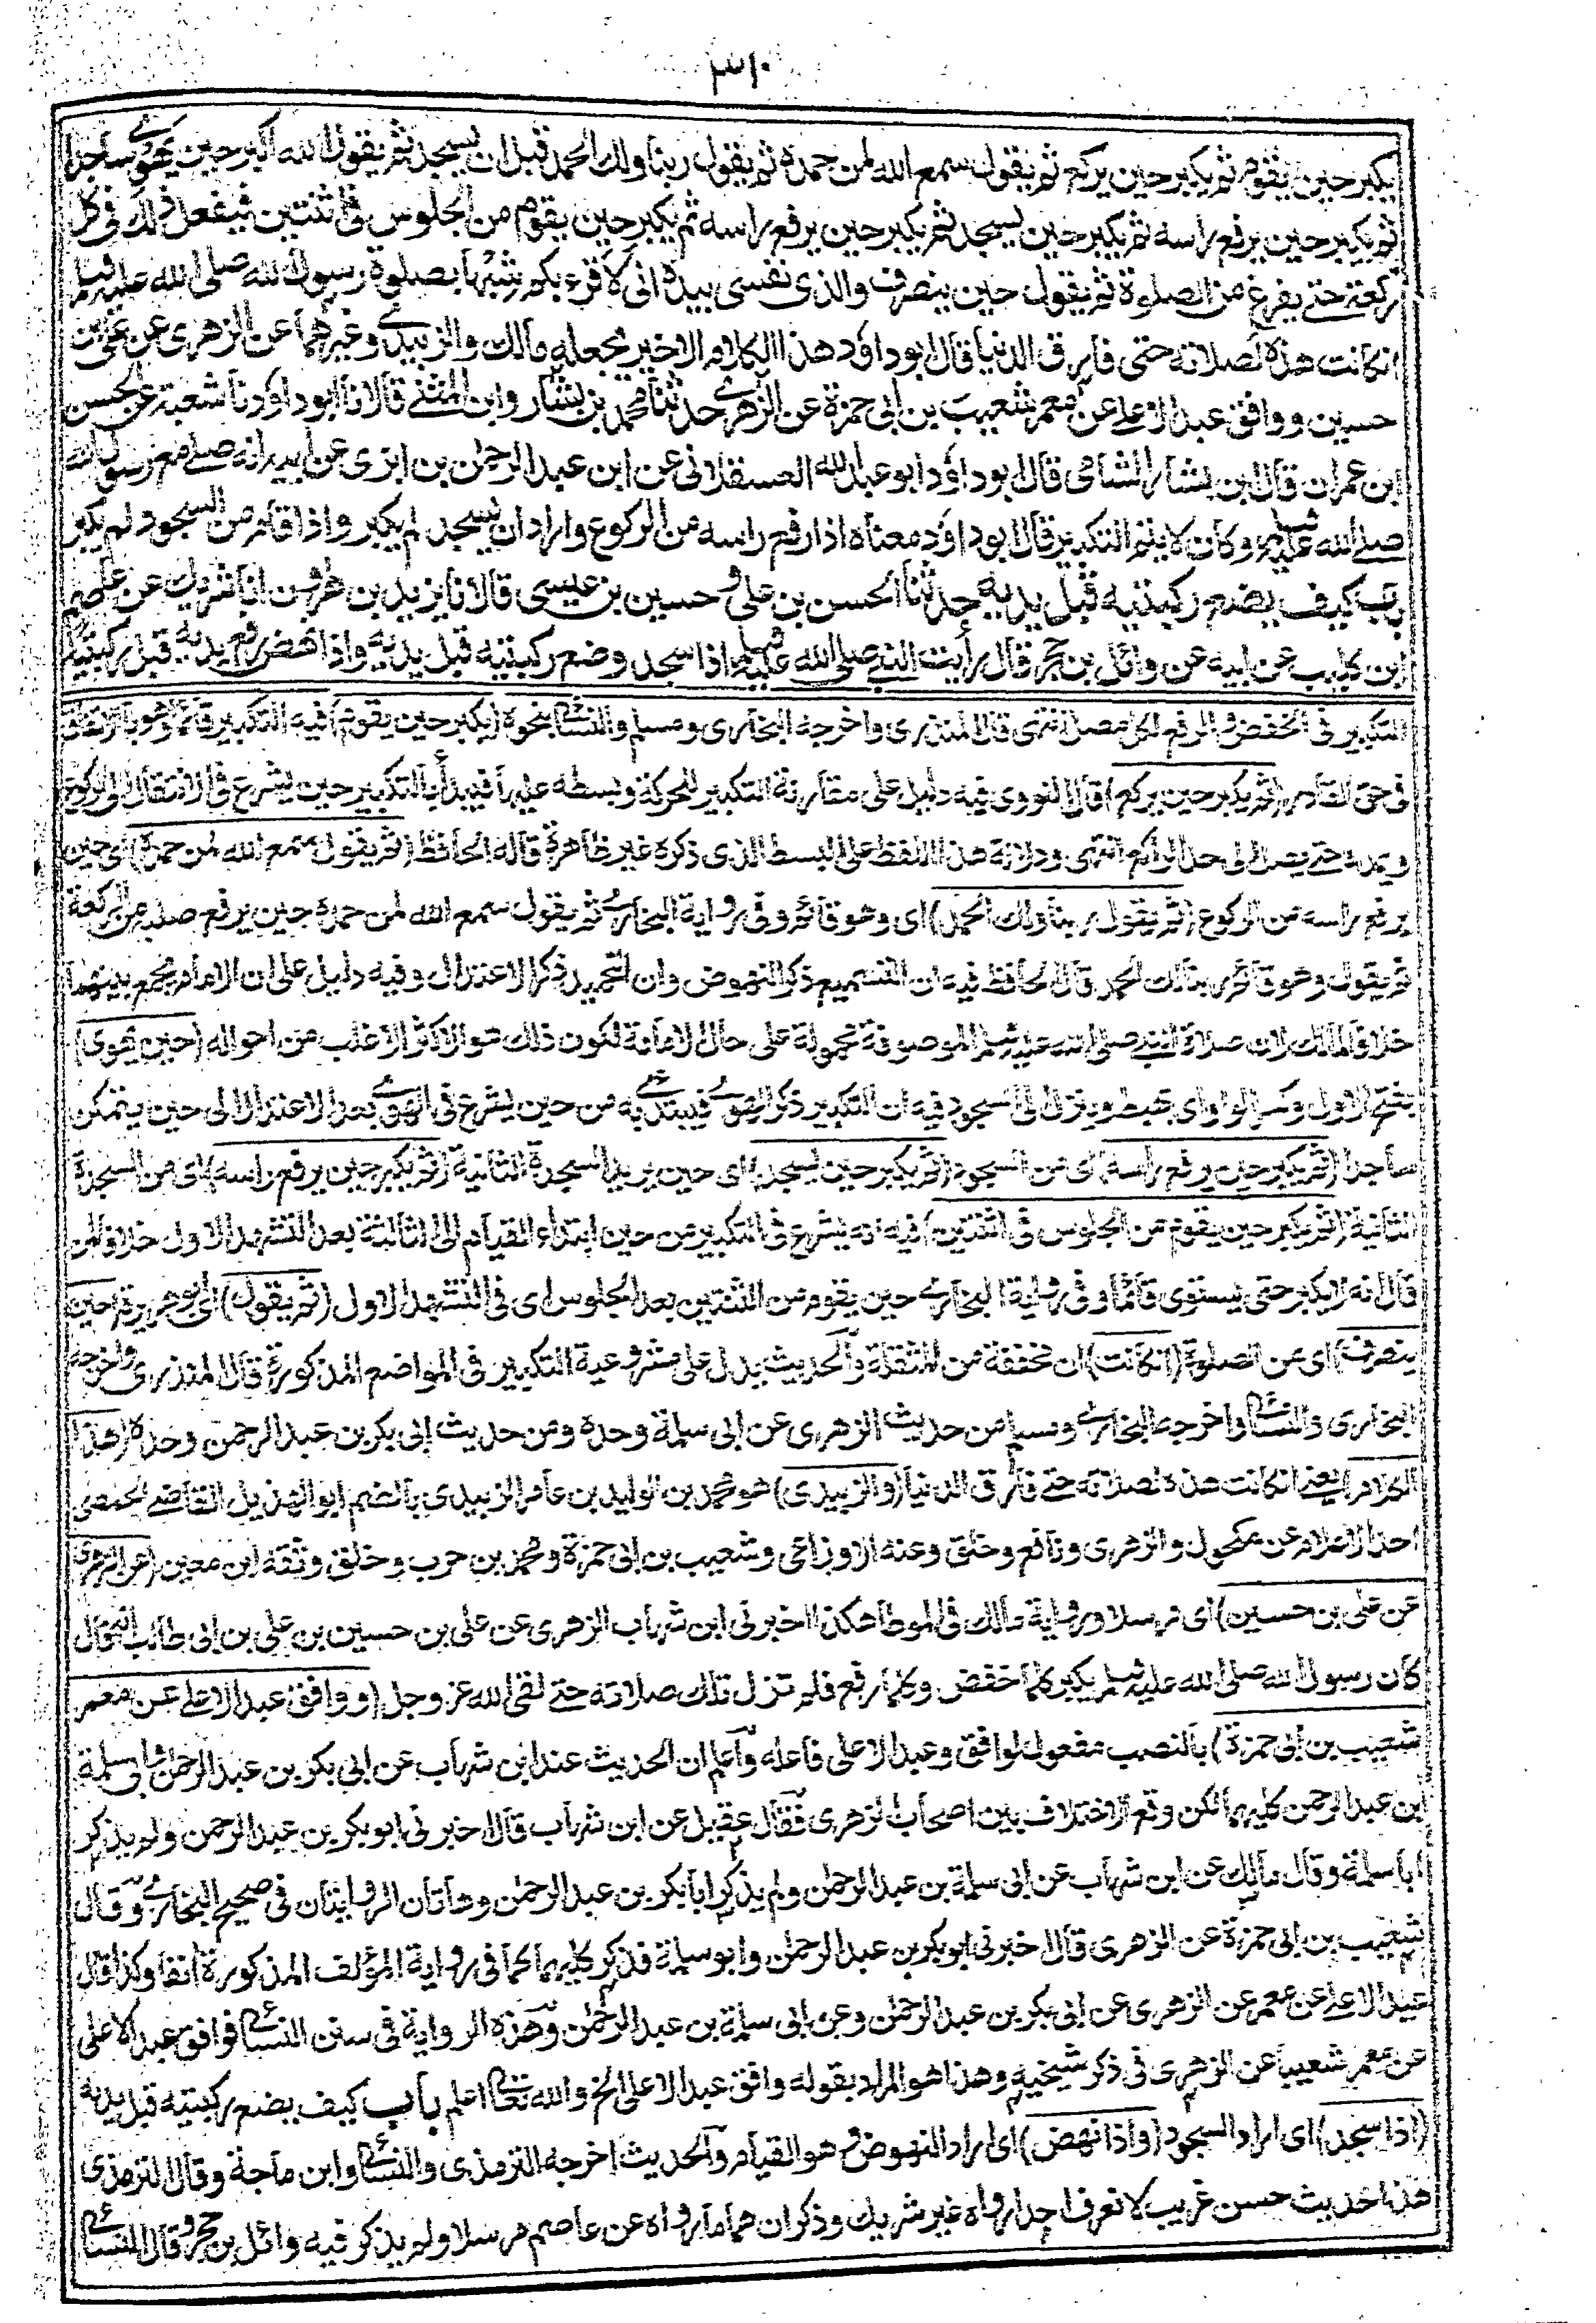 ٣١٠
يكبر حين يقوم ثم يكبر حين يركع ثم يقول سمع الله لمن حمده ثم يقول ربنا ولك الحمد قبل ان يسجد ثم يقول الله اكبر حين يهوى ساجدا
ثم يكبر حين يرفع راسه ثم يكبر حين يسجد ثم يكبر حين يرفع راسه ثم يكبر حين يقوم من الجلوس فى اثنتين فيفعل ذلك فى كل
ركعة حتى يفرغ من الصلوة ثم يقول حين ينصرف والذى نفسى بيده انى لاقربكم شبها بصلوة رسول الله صلى الله عليه وسلم
ان كانت هذه لصلاته حتى فارق الدنيا قال ابو داود هذا الكلام الاخير يجعله مالك والزبيدى وغيرهما عن الزهرى عن على بن
حسين ووافق عبد الاعلى عن معمر شعيب بن ابى حمزة عن الزهرى حدثنا محمد بن بشار وابن المثنى قالا نا ابو داود نا شعبة عن الحسن
ابن عمران قال ابن بشار الشامى قال ابو داود ابو عبد الله العسقلانى عن ابن عبد الرحمن بن ابزى عن ابيه انه صلى مع رسول الله
صلى الله عليه وسلم وكان لا يتم التكبير قال ابو داود معناه اذا رفع راسه من الركوع واراد ان يسجد لم يكبر واذا قام من السجود لم يكبر
باب كيف يضع ركبتيه قبل يديه حدثنا الحسن بن على وحسين بن عيسى قالا نا يزيد بن هارون انا شريك عن عاصم
ابن كليب عن ابيه عن وائل بن حجر قال رأيت النبى صلى الله عليه وسلم اذا سجد وضع ركبتيه قبل يديه واذا نهض رفع يديه قبل ركبتيه
التكبير فى الخفض والرفع لكل مصل انتهى قال المنذرى واخرجه البخارى ومسلم والنسائى بنحوه (يكبر حين يقوم) فيه التكبير قائما وهو بالاتفاق
فى حق القادر (ثم يكبر حين يركع) قال النووى فيه دليل على مقارنة التكبير للحركة وبسطه عليها فيبدأ بالتكبير حين يشرع فى الانتقال الى الركوع
ويمده حتى يصل الى حد الراكع انتهى ودلالة هذا اللفظ على البسط الذى ذكره غير ظاهرة قاله الحافظ (ثم يقول سمع الله لمن حمده) اى حين
يرفع راسه من الركوع (ثم يقول ربنا ولك الحمد) اى وهو قائم وفى رواية البخارى ثم يقول سمع الله لمن حمده حين يرفع صلبه من الركعة
ثم يقول وهو قائم ربنا لك الحمد قال الحافظ فيه ان التسميع ذكر النهوض وان التحميد ذكر الاعتدال وفيه دليل على ان الامام يجمع بينهما
خلافا لمالك لان صلاة النبى صلى الله عليه وسلم الموصوفة محمولة على حال الامامة لكون ذلك هو الاكثر الاغلب من احواله (حين يهوى)
بفتح الاول وكسر الواو اى يهبط وينزل الى السجود فيه ان التكبير ذكر الهوى فيبتدئ به من حين يشرع فى الهوى بعد الاعتدال الى حين يتمكن
ساجدا (ثم يكبر حين يرفع راسه) اى من السجود (ثم يكبر حين يسجد) اى حين يريد السجدة الثانية (ثم يكبر حين يرفع راسه) اى من السجدة
الثانية (ثم يكبر حين يقوم من الجلوس فى اثنتين) فيه انه يشرع فى التكبير من حين ابتداء القيام الى الثالثة بعد التشهد الاول خلافا لمن
قال انه لا يكبر حتى يستوى قائما وفى رواية البخارى حين يقوم من الثنتين بعد الجلوس اى فى التشهد الاول (ثم يقول) اى ابو هريرة (حين
ينصرف) اى من الصلوة (ان كانت) ان مخففة من المثقلة والحديث يدل على مشروعية التكبير فى المواضع المذكورة قال المنذرى واخرجه
البخارى والنسائى واخرجه البخارى ومسلم من حديث الزهرى عن ابى سلمة وحده ومن حديث ابى بكر بن عبد الرحمن وحده (هذا
الكلام) يعنى ان كانت هذه لصلاته حتى فارق الدنيا (والزبيدى) هو محمد بن الوليد بن عامر الزبيدى بالضم ابو الهذيل القاضى الحمصى
احد الاعلام عن مكحول والزهرى ونافع وخلق وعنه الاوزاعى وشعيب بن ابى حمزة ومحمد بن حرب وخلق وثقه ابن معين (عن الزهرى
عن على بن حسين) اى مرسلا ورواية مالك فى الموطأ هكذا اخبرنى ابن شهاب الزهرى عن على بن حسين بن على بن ابى طالب انه قال
كان رسول الله صلى الله عليه وسلم يكبر كلما خفض وكلما رفع فلم تزل تلك صلاته حتى لقى الله عز وجل (ووافق عبد الاعلى عن معمر
شعيب بن ابى حمزة) بالنصب مفعول لوافق وعبد الاعلى فاعله واعلم ان الحديث عند ابن شهاب عن ابى بكر بن عبد الرحمن وابى سلمة
ابن عبد الرحمن كليهما لكن وقع الاختلاف بين اصحاب الزهرى فقال عقيل عن ابن شهاب قال اخبرنى ابو بكر بن عبد الرحمن ولم يذكر
ابا سلمة وقال مالك عن ابن شهاب عن ابى سلمة بن عبد الرحمن ولم يذكر ابا بكر بن عبد الرحمن وهاتان الروايتان فى صحيح البخارى وقال
شعيب بن ابى حمزة عن الزهرى قال اخبرنى ابو بكر بن عبد الرحمن وابو سلمة فذكر كليهما كما فى رواية المؤلف المذكورة انفا وكذا قال
عبد الاعلى عن معمر عن الزهرى عن ابى بكر بن عبد الرحمن وعن ابى سلمة بن عبد الرحمن وهذه الرواية فى سنن النسائى فوافق عبد الاعلى
عن معمر شعيبا عن الزهرى فى ذكر شيخيه وهذا هو المراد بقوله وافق عبد الاعلى الخ والله تعالى اعلم باب كيف يضع ركبتيه قبل يديه
(اذا سجد) اى اراد السجود (واذا نهض) اى اراد النهوض وهو القيام والحديث اخرجه الترمذى والنسائى وابن ماجة وقال الترمذى
هذا حديث حسن غريب لا نعرف احدا رواه غير شريك وذكر ان هماما رواه عن عاصم مرسلا ولم يذكر فيه وائل بن حجر وقال النسائى